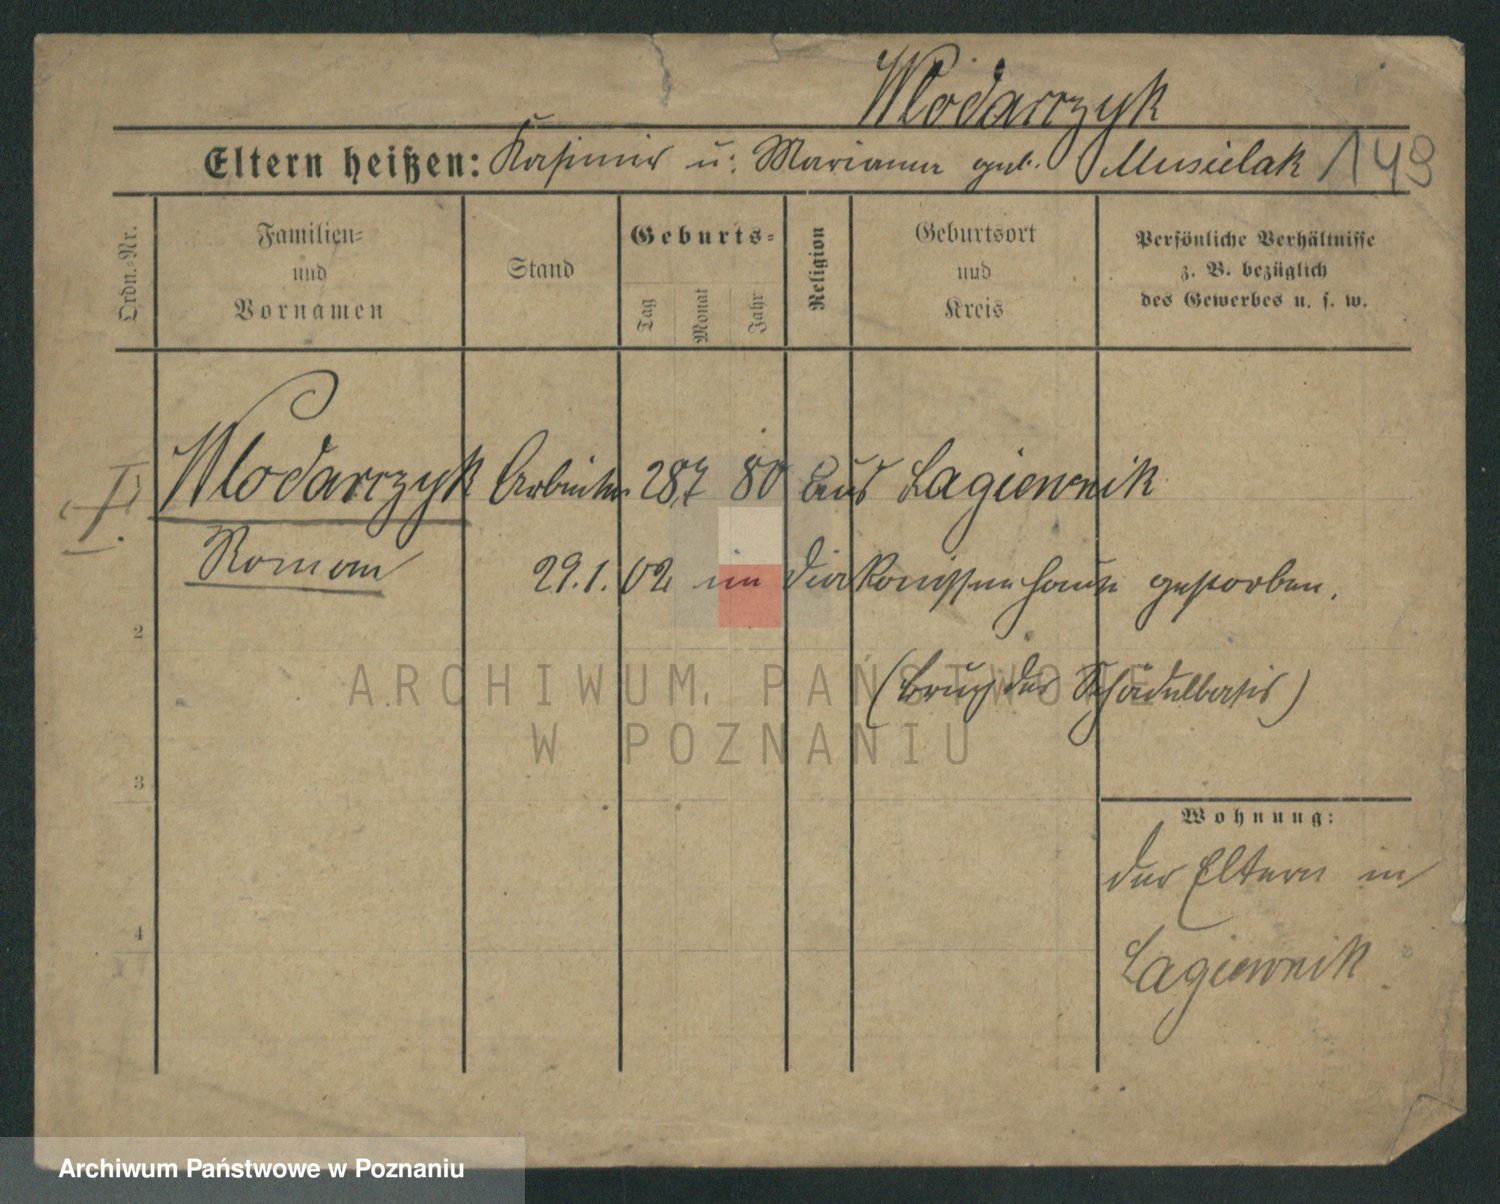 Wlodarczyk
Eltern heißen: Kasimir u: Marianna geb. Musielak 149
Ordn.-Nr.
Familien-
und
Vornamen
Stand
Geburts-
Tag
Monat
Jahr
Religion
Geburtsort
und
Kreis
Persönliche Verhältnisse
z. B. bezüglich
des Gewerbes u. s. w.
Wlodarczyk Arbeiter 28.7 80 aus Lagiewnik
Roman 29.1.02 im Diakonissenhause gestorben.
2
(Bruch der Schädelbasis)
ARCHIWUM PAŃSTWOWE
W POZNANIU
3
Wohnung:
der Eltern in
4
Lagiewnik.
Archiwum Państwowe w Poznaniu